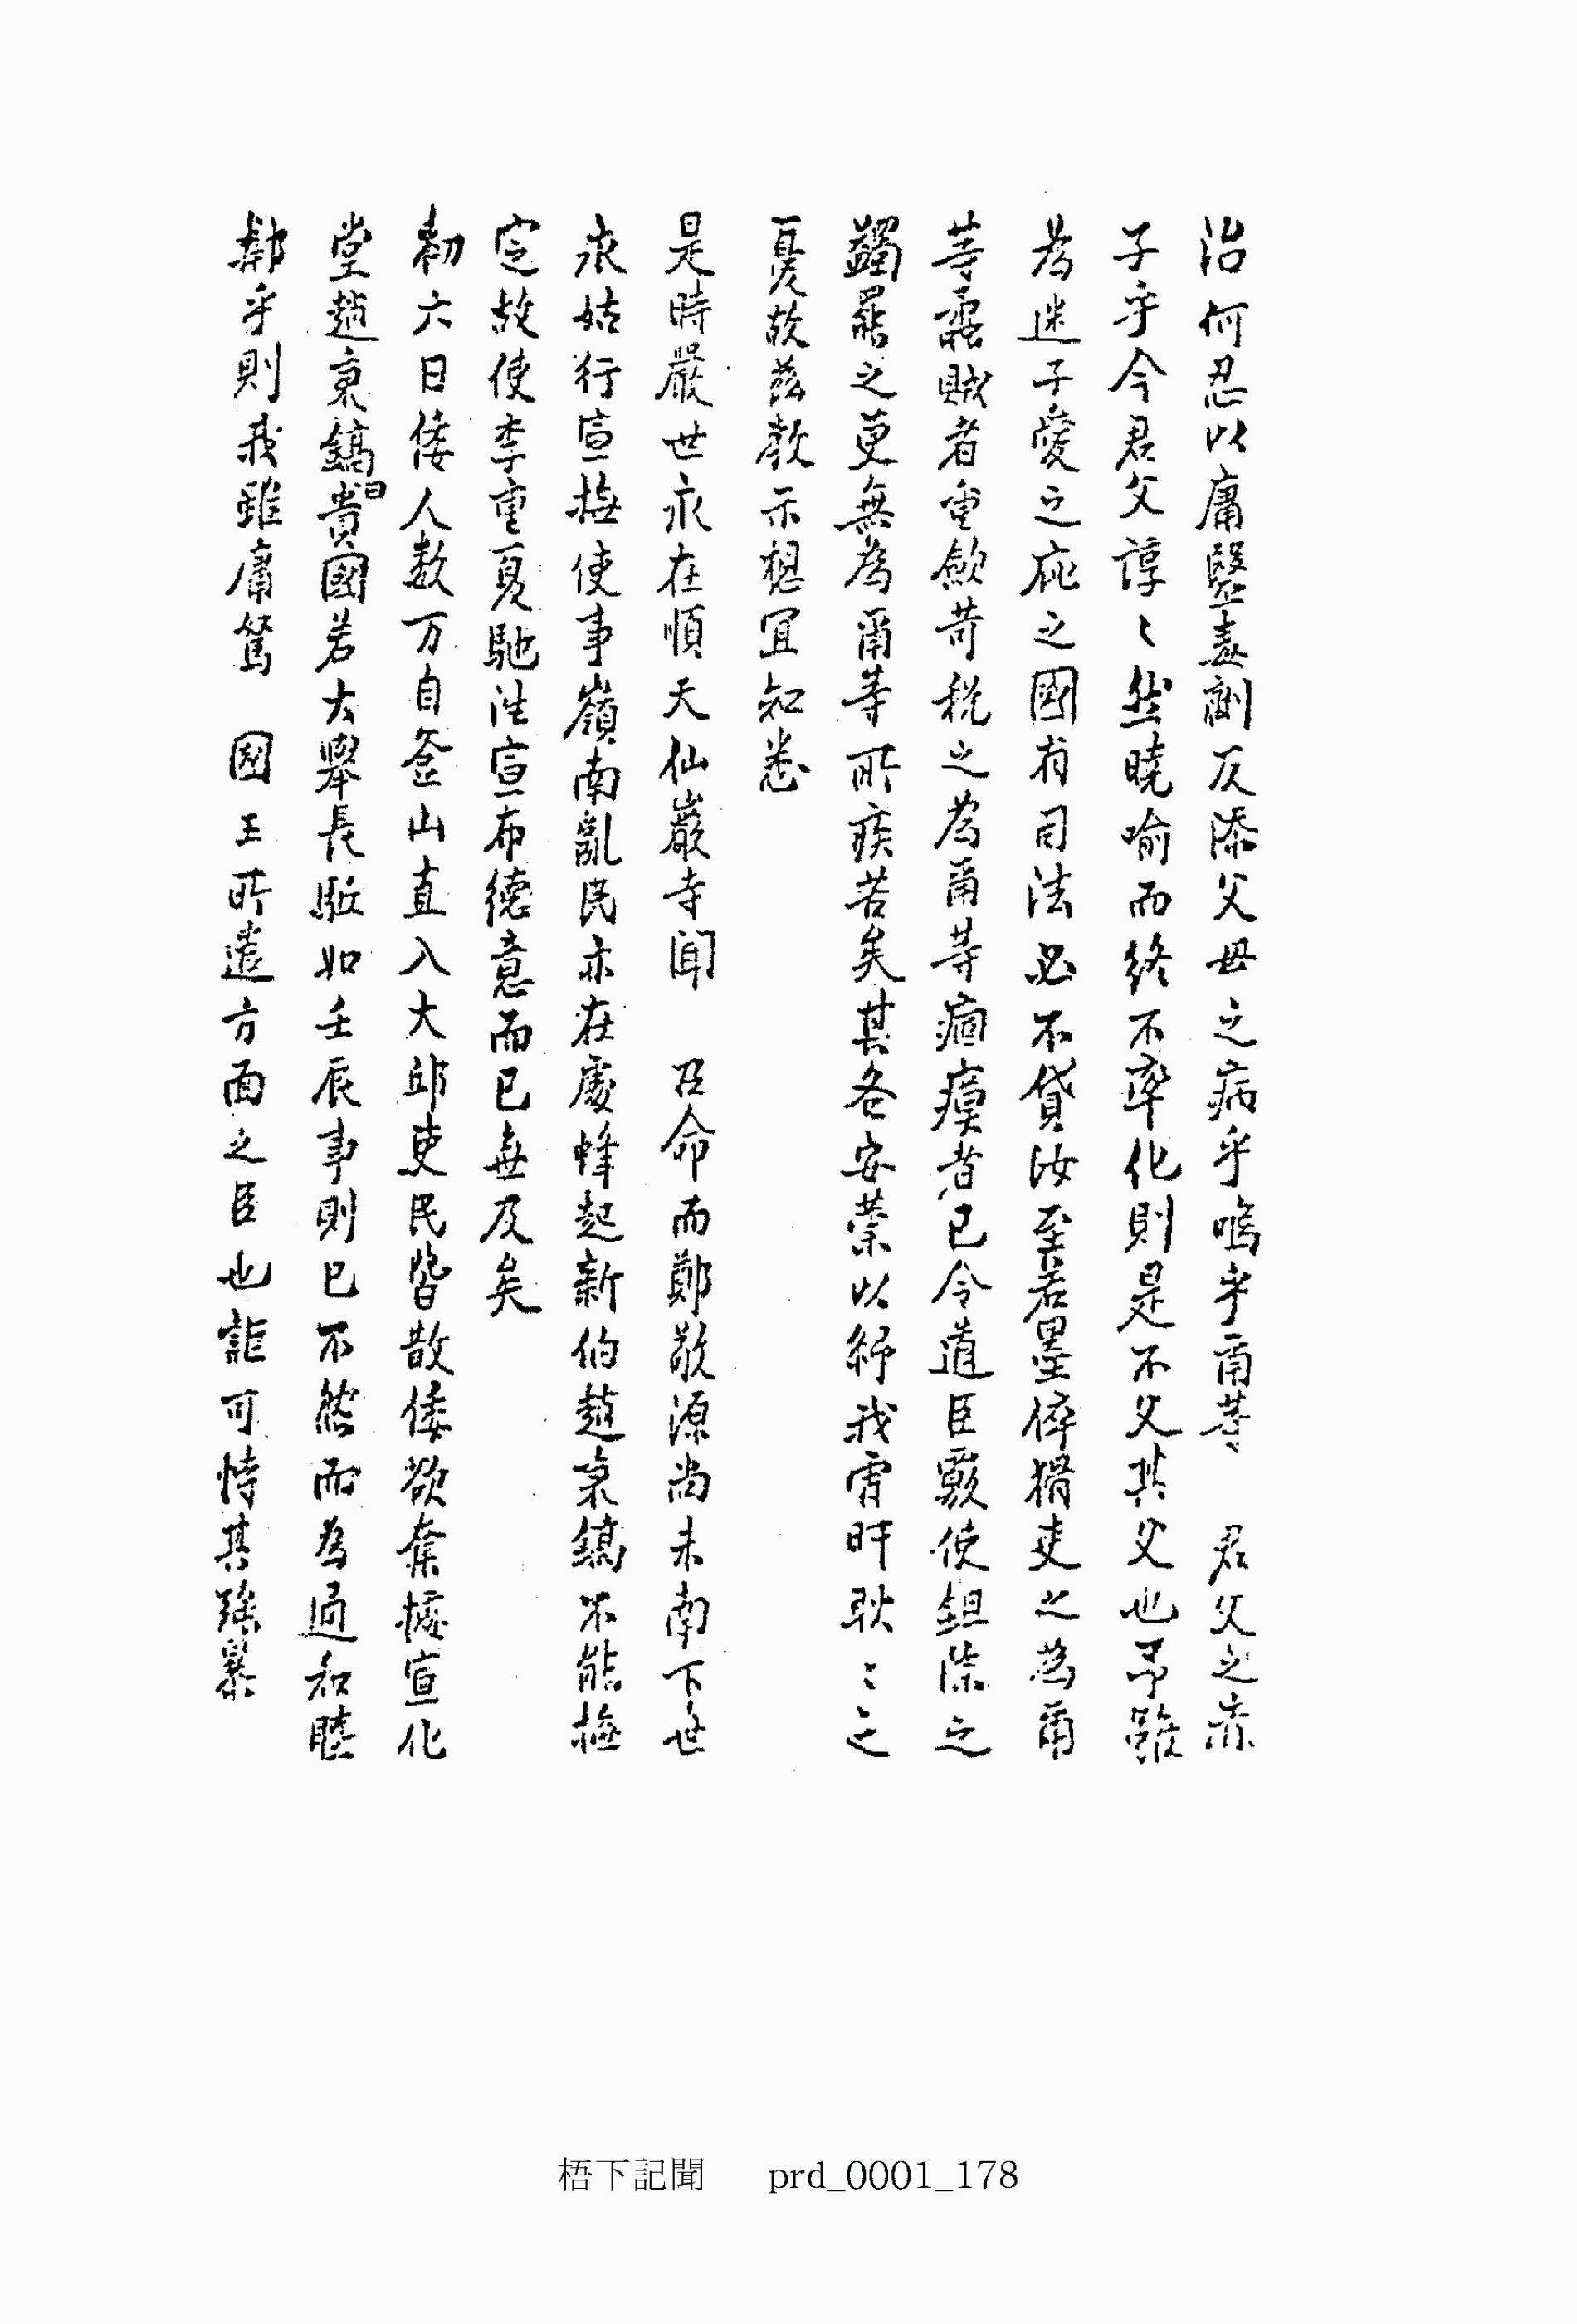 治何忍以庸醫毒劑反添父母之病乎嗚乎爾等 君父之赤
子乎今君父諄〻然曉喻而終不率化則是不父其父也予雖
為迷子愛之庇之國有司法必不貸汝至若墨倅猾吏之為爾
等蟊賊者重歛苛稅之為爾等痼瘼者已令道臣覈使鉏除之
蠲罷之更無為爾等所疾苦矣其各安業以紓我宵旰耿〻之
憂故玆敎示想宜知悉
是時嚴世永在順天仙巖寺聞 召命而鄭敬源尚未南下世
永姑行宣撫使事嶺南亂民亦在處蜂起新伯趙秉鎬不能撫
定故使李重夏馳往宣布德意而已無及矣
初六日倭人数万自釜山直入大邱吏民皆散倭欲奪據宣化
堂趙秉鎬曰貴國若大擧長駈如壬辰事則已不然而為通和睦
鄰乎則我雖庸駑 國王所遣方面之臣也詎可恃其強暴
梧下記聞 prd_0001_178